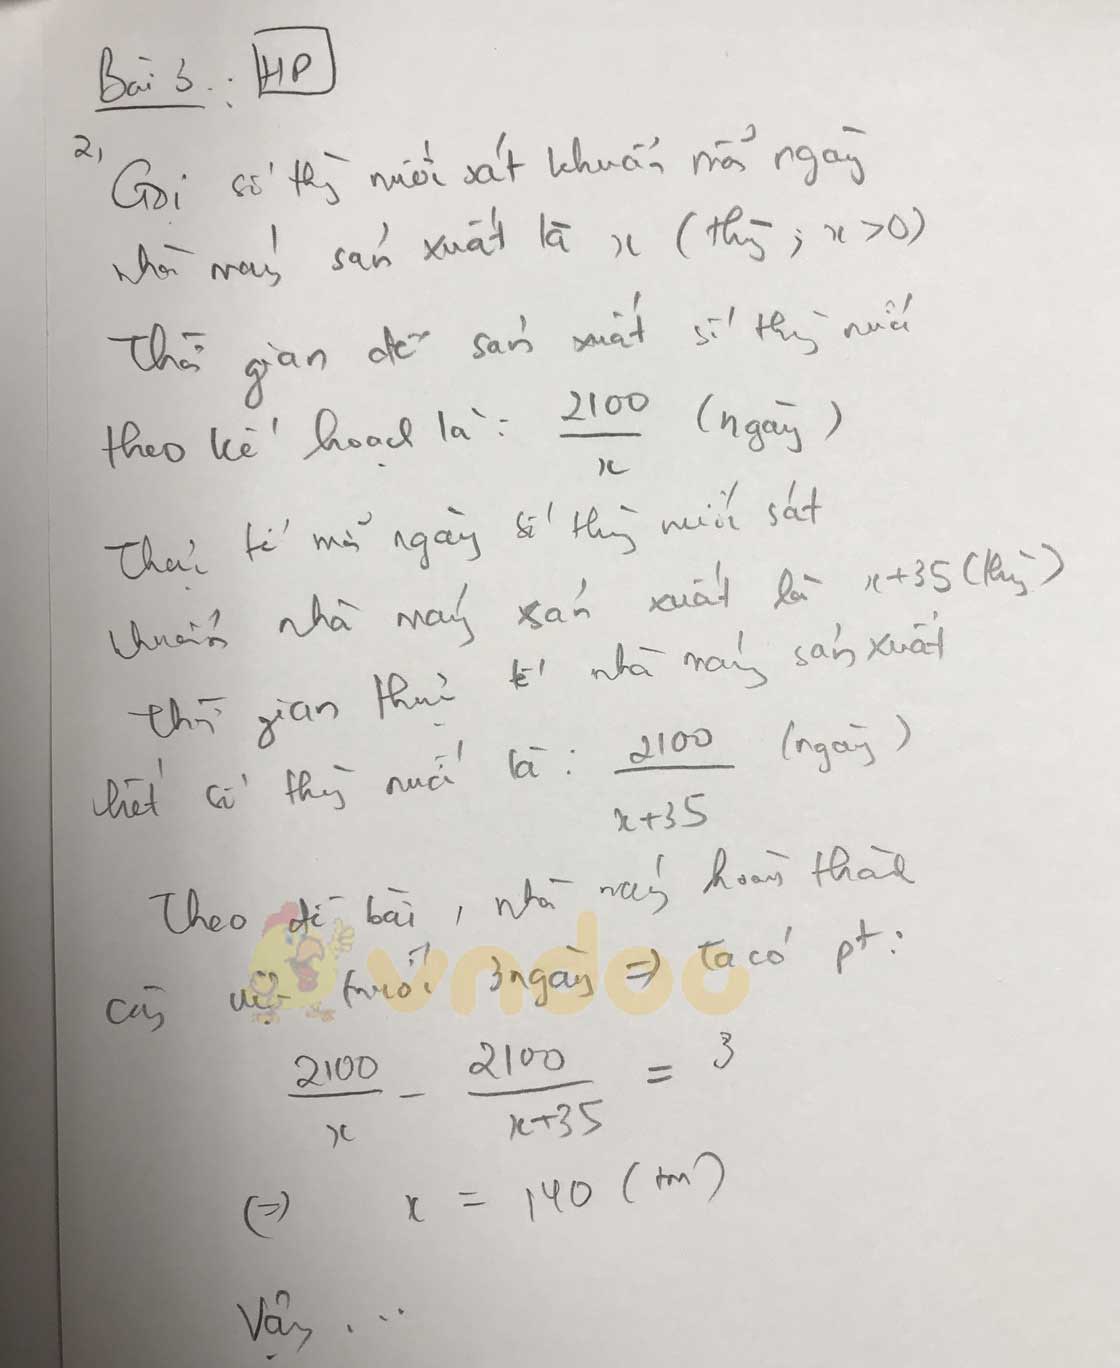 Bài 3: HP
2, Gọi số thùng nước sát khuẩn mỗi ngày
nhà máy sản xuất là x (thùng; x > 0)
Thời gian để sản xuất số thùng nước
theo kế hoạch là: 2100/x (ngày)
Thực tế mỗi ngày số thùng nước sát
khuẩn nhà máy sản xuất là x+35 (thùng)
Thời gian thực tế nhà máy sản xuất
hết số thùng nước là: 2100/(x+35) (ngày)
Theo đề bài, nhà máy hoàn thành
công việc trước 3 ngày => ta có pt:
2100/x - 2100/(x+35) = 3
(=) x = 140 (tm)
Vậy ...
vndoo